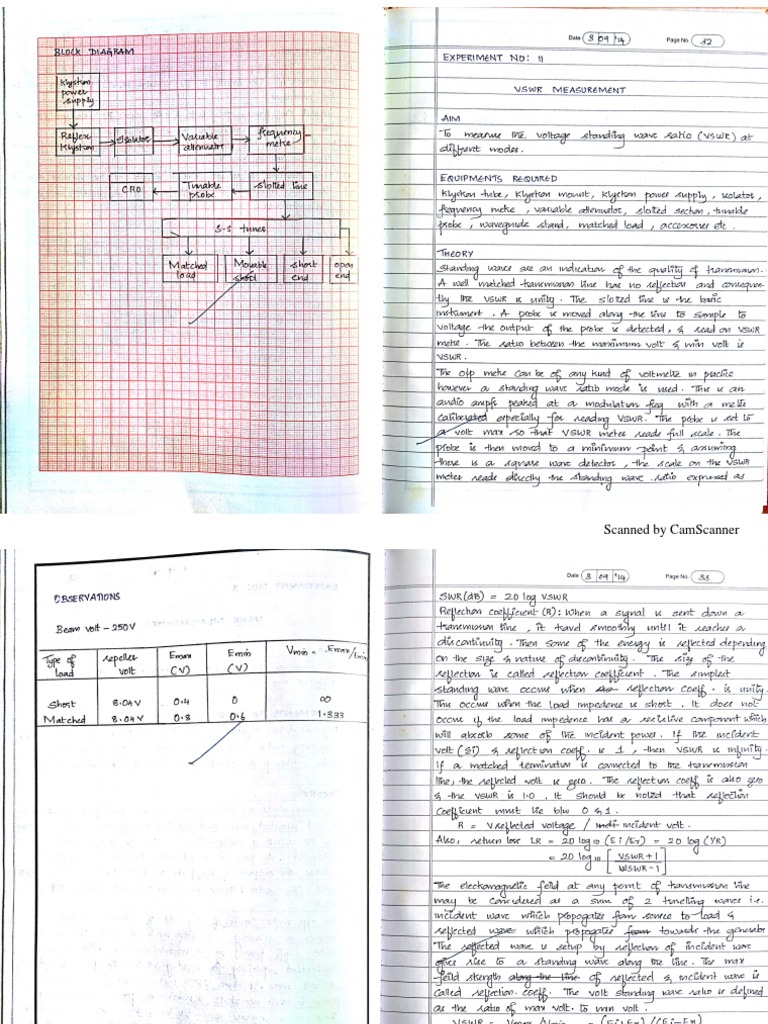 BLOCK DIAGRAM
Klystron
power
supply
Reflex
Klystron
Isolator
Variable
attenuator
frequency
metre
CRO
Tunable
probe
slotted line
S-S tuner
Matched
load
Movable
short
short
end
open
end
Date 3 09 '14 Page No. 32
EXPERIMENT NO: 11
VSWR MEASUREMENT
AIM
To measure the voltage standing wave ratio (VSWR) at
different modes.
EQUIPMENTS REQUIRED
Klystron tube, Klystron mount, klystron power supply, isolator,
frequency metre, variable attenuator, slotted section, tunable
probe, waveguide stand, matched load, accessories etc.
THEORY
Standing waves are an indication of the quality of transmission.
A well matched transmission line has no reflection and consequen-
tly the VSWR is unity. The slotted line is the basic
instrument. A probe is moved along the line to sample to
voltage the output of the probe is detected, & read on VSWR
metre. The ratio between the maximum volt & min volt is
VSWR.
The o/p metre can be of any kind of voltmetre in practice
however a standing wave ratio mode is used. This is an
audio ampfr peaked at a modulation frq with a metre
calibrated especially for reading VSWR. The probe is set to
a volt max so that VSWR meter reads full scale. The
probe is then moved to a minimum point & assuming
there is a square wave detector, the scale on the VSWR
meter reads directly the standing wave ratio expressed as
Scanned by CamScanner
OBSERVATIONS
Beam volt - 250V
Type of load repeller volt Emax (V) Emin (V) Vmin = Emax/Emin
Short 8.04V 0.4 0 ∞
Matched 8.04V 0.8 0.6 1.333
Date 3 09 '14 Page No. 33
SWR(dB) = 20 log VSWR
Reflection coefficient (R): When a signal is sent down a
transmission line, it travel smoothly until it reaches a
discontinuity. Then some of the energy is reflected depending
on the size & nature of discontinuity. The size of the
reflection is called reflection coefficient. The simplest
standing wave occurs when reflection coeff. is unity.
This occurs when the load impedence is short. It does not
occur if the load impedence has a resistive component which
will absorb some of the incident power. If the incident
volt (Ei) & reflection coeff. is 1, then VSWR is infinity.
If a matched termination is connected to the transmission
line, the reflected volt is zero. The reflection coeff is also zero
& the VSWR is 1.0. It should be noted that reflection
coefficient must lie b/w 0 & 1.
R = V reflected voltage / incident volt.
Also, return loss LR = 20 log10 (Ei/Er) = 20 log (1/R)
= 20 log10 [VSWR+1 / VSWR-1]
The electomagnetic feild at any point of transmission line
may be considered as a sum of 2 travelling waves i.e.
incident wave which propogates from source to load &
reflected wave which propogates from towards the generator
The reflected wave is setup by reflection of incident wave
give rise to a standing wave along the line. The max
feild strength along the line of reflected & incident wave is
called reflection. coeff. The volt standing wave ratio is defined
as the ratio of max volt. to min volt.